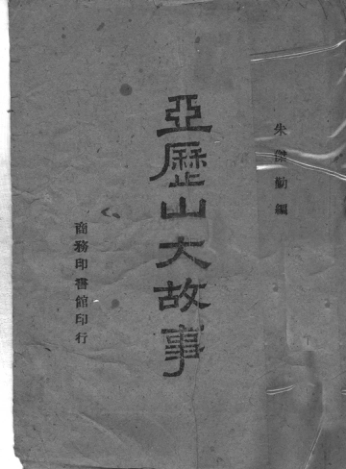 朱傑勤編
亞歷山大故事
商務印書館印行